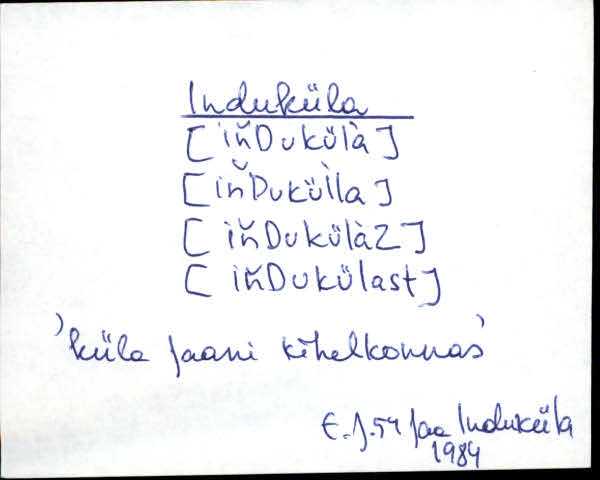 Induküla
[iň̀Dukülà]
[iňDukǜlla]
[iňDukülàZ]
[iňDukülast]
'küla Jaani kihelkonnas'
E.J.54 Jaa Induküla
1984